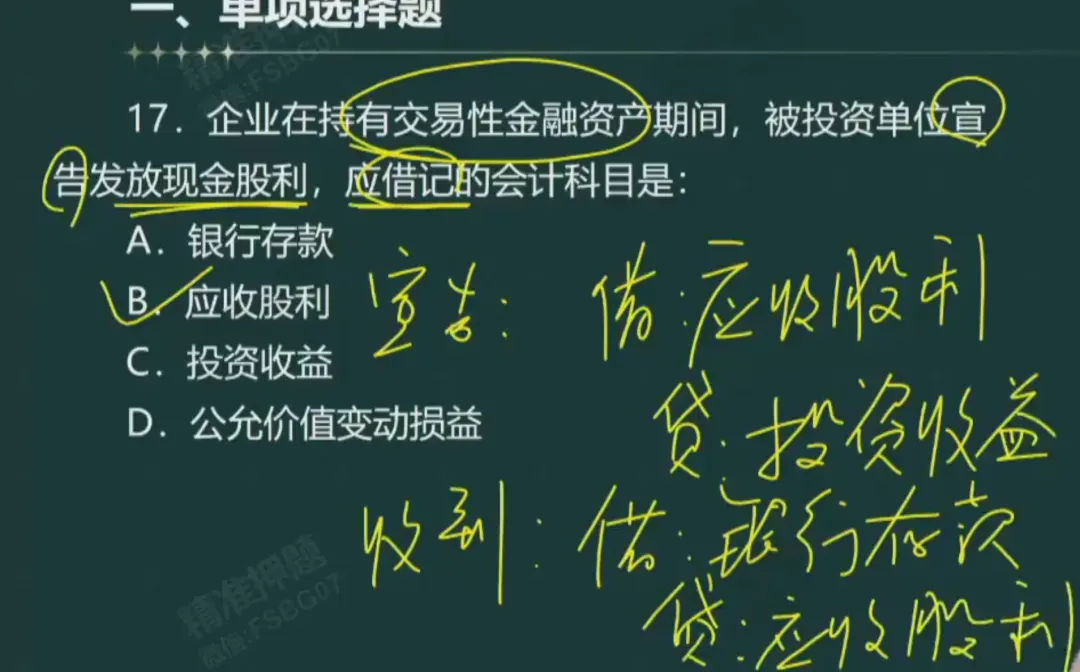 一、单项选择题
17. 企业在持有交易性金融资产期间，被投资单位宣
告发放现金股利，应借记的会计科目是：
A. 银行存款
B. 应收股利
C. 投资收益
D. 公允价值变动损益
宣告: 借:应收股利
贷:投资收益
收到: 借:银行存款
贷:应收股利
精准押题
微信:FSBG07
精准押题
微信:FSBG07